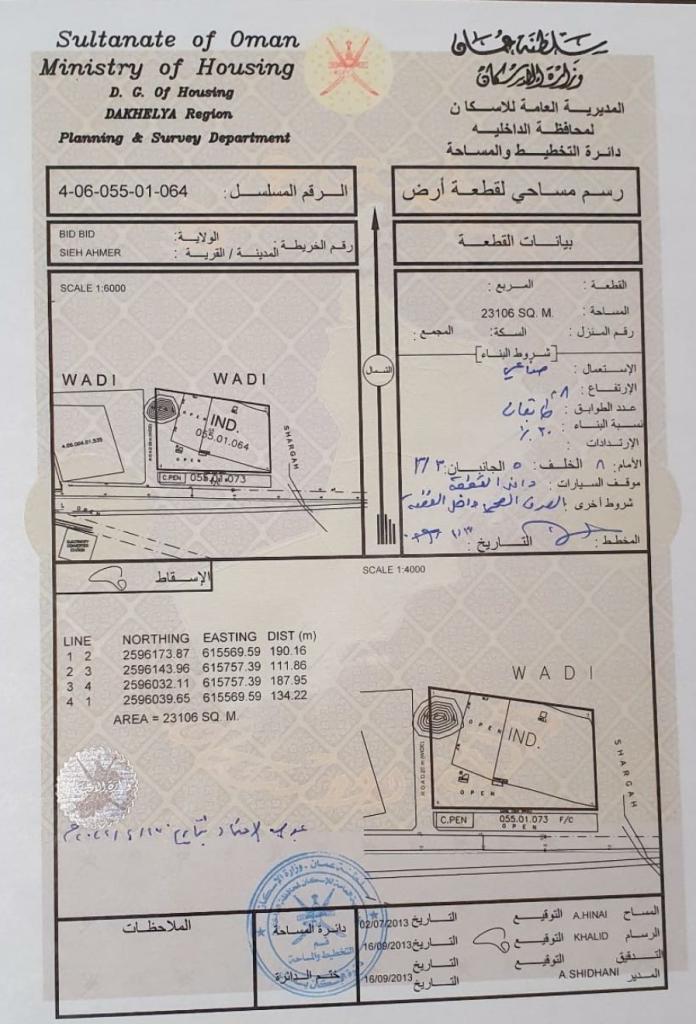 Sultanate of Oman
Ministry of Housing
D. G. Of Housing
DAKHELYA Region
Planning & Survey Department
سلطنة عمان
وزارة الإسكان
المديرية العامة للاسكان
لمحافظة الداخليه
دائرة التخطيط والمساحة
4-06-055-01-064 الرقم المسلسل :
رسم مساحي لقطعة أرض
BID BID الولاية :
SIEH AHMER المدينة / القرية :
رقم الخريطة :
بيانات القطعة
SCALE 1:6000
WADI WADI
IND.
055.01.064
OPEN
C.PEN 055.01.073
SHARGAH
الشمال
القطعة : المربع :
المساحة : 23106 SQ. M.
رقم المنزل : السكة: المجمع :
[شروط البناء]
الإستعمال : صناعي
الإرتفاع : ٨م
عدد الطوابق : طابقان
نسبة البناء : ٣٠٪
الإرتدادات :
الأمام : ٨ الخلف : ٥ الجانبان : ٣/٣
موقف السيارات : داخل القطعة
شروط أخرى : الصرف الصحي داخل القطعة
المخطط : التاريخ :
الإسقاط
SCALE 1:4000
LINE NORTHING EASTING DIST (m)
1 2 2596173.87 615569.59 190.16
2 3 2596143.96 615757.39 111.86
3 4 2596032.11 615757.39 187.95
4 1 2596039.65 615569.59 134.22
AREA = 23106 SQ. M.
WADI
OPEN
IND.
OPEN
C.PEN 055.01.073 F/C
OPEN
SHARGAH
الملاحظات
دائرة المساحة
قسم
التخطيط والمساحة
ختم الدائرة
المساح A.HINAI التوقيع التاريخ 02/07/2013
الرسام KHALID التوقيع التاريخ 16/09/2013
التدقيق التوقيع التاريخ
المدير A.SHIDHANI التاريخ 16/09/2013